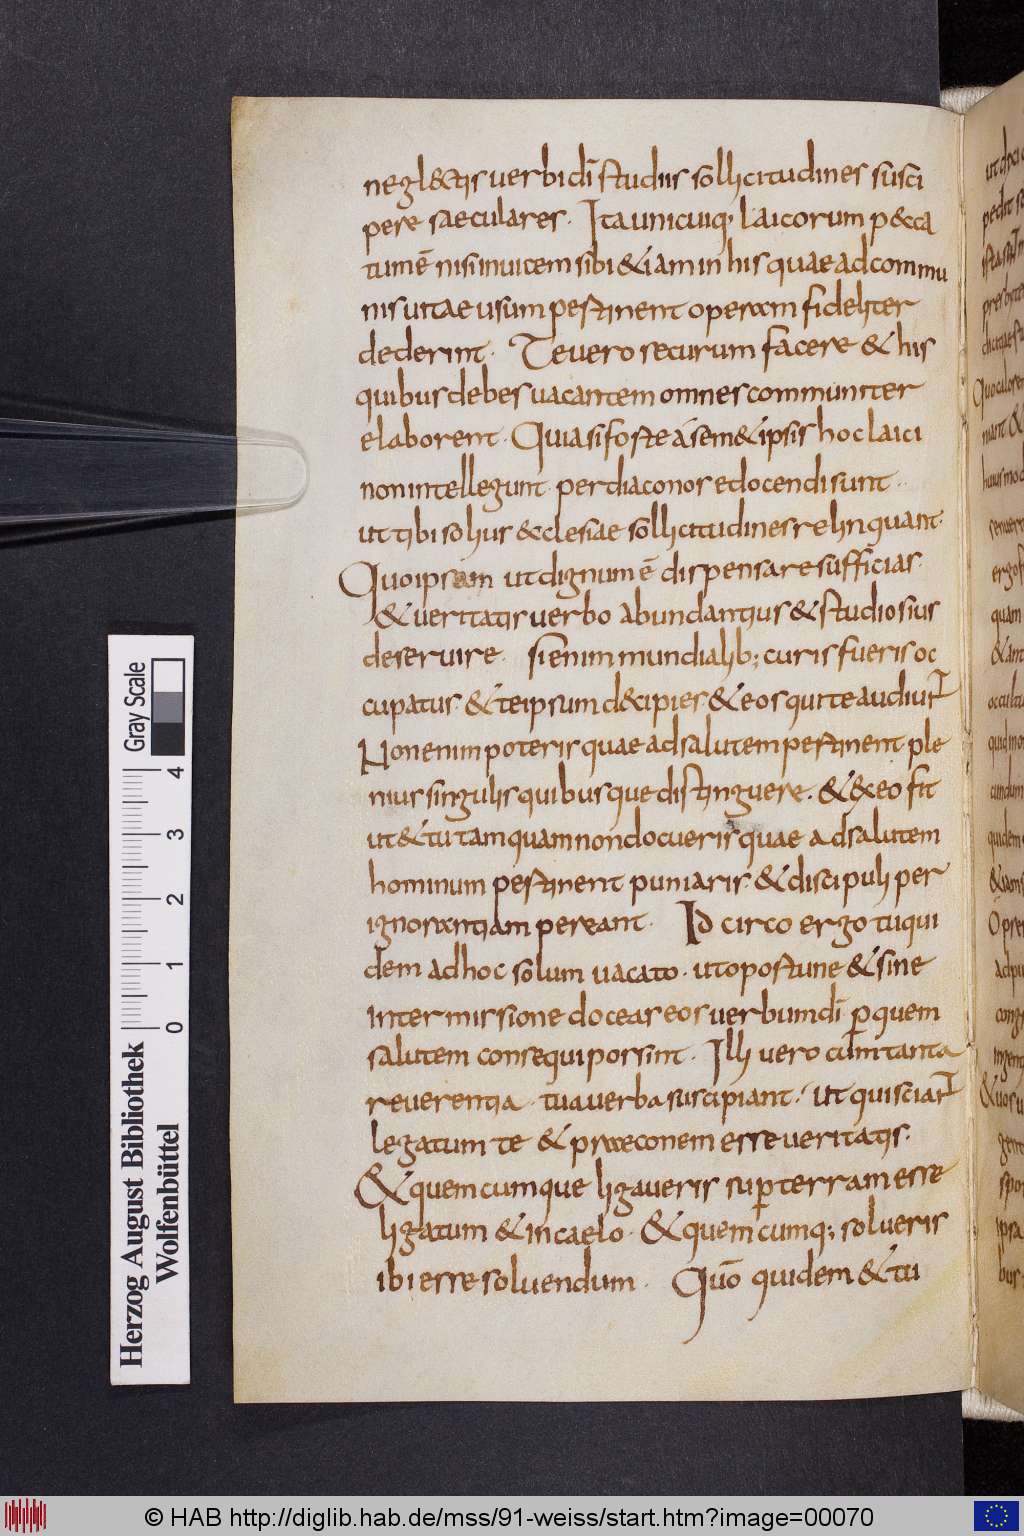 neglectis verbi dī studiis sollicitudines susci
pere saeculares· Ita unicuiq; laicorum pecca
tum ē nisi invicem sibi & iam in his quae ad commu
nis vitae usum pertinent operam fideliter
dederint· Te vero securum facere & his
quibus debes vacantem omnes communiter
elaborent· Quia si forte a sem&ipsis hoc laici
non intellegunt· per diaconos edocendi sunt·
ut tibi solius &clesiae sollicitudines relinquant·
Quo ipsam ut dignum ē dispensare sufficias·
& veritatis verbo abundantius & studiosius
deservire· si enim mundialib; curis fueris oc
cupatus· & te ipsum decipies· & eos qui te audiunt
Non enim poteris quae ad salutem pertinent ple
nius singulis quibusque distinguere· & ex eo fit
ut & tu tamquam non docueris quae ad salutem
hominum pertinent puniaris· & discipuli per
ignorantiam pereant· Id circo ergo tu qui
dem ad hoc solum vacato· ut oportune & sine
intermissione doceas eos verbum dī p quem
salutem consequi possint· Illi vero cum tanta
reverentia· tua verba suscipiant· ut qui sciant
legatum te & praeconem esse veritatis·
& quemcumque ligaveris sup terram esse
ligatum & in caelo· & quemcumq; solveris
ibi esse solvendum· Quō quidem & tu
Herzog August Bibliothek
Wolfenbüttel
0 1 2 3 4
Gray Scale
© HAB http://diglib.hab.de/mss/91-weiss/start.htm?image=00070